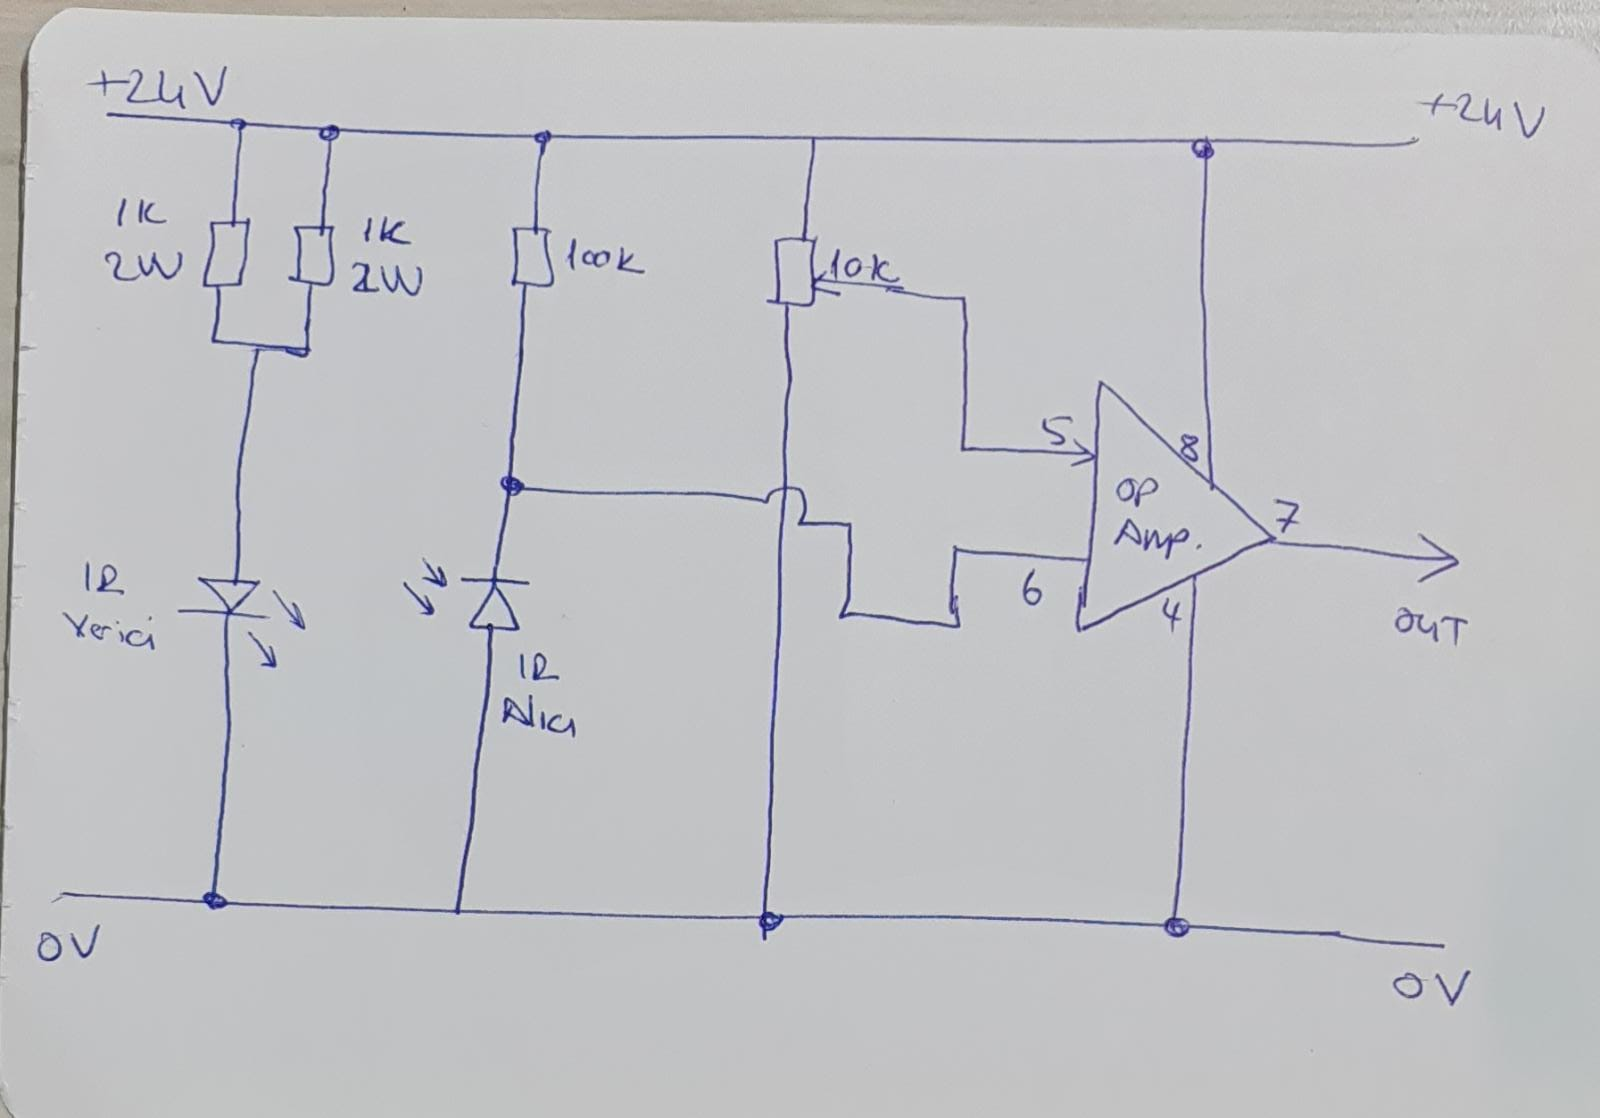 +24V
+24V
1K
2W
1K
2W
100K
10K
5
8
OP
Amp.
7
6
4
OUT
IR
Verici
IR
Alıcı
0V
0V